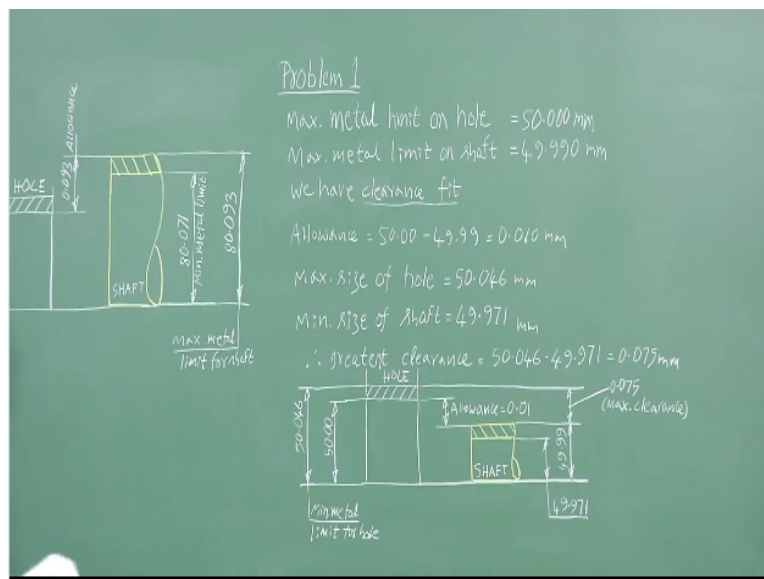 Problem 1
Max. metal limit on hole = 50.000 mm
Max. metal limit on shaft = 49.990 mm
we have clearance fit
Allowance = 50.00 - 49.99 = 0.010 mm
Max. size of hole = 50.046 mm
Min. size of shaft = 49.971 mm
∴ greatest clearance = 50.046 - 49.971 = 0.075 mm
HOLE
0.093 Allowance
SHAFT
80.071
Min. metal limit
80.093
Max metal
limit for shaft
HOLE
50.046
50.00
Allowance = 0.01
0.075
(Max. clearance)
SHAFT
49.99
49.971
Min metal
limit for hole